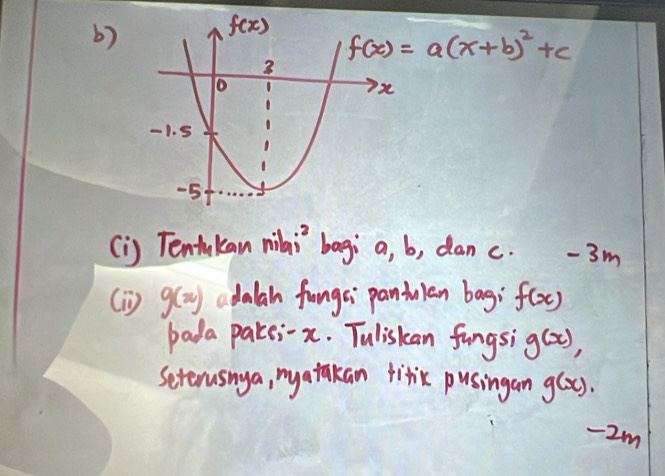 b)
f(x)
f(x) = a(x+b)² + c
3
0
x
-1.5
-5
(i) Tentukan nilai² bagi a, b, dan c. -3m
(ii) g(x) adalah fungsi pantulan bagi f(x)
pada paksi-x. Tuliskan fungsi g(x),
seterusnya, nyatakan titik pusingan g(x).
-2m